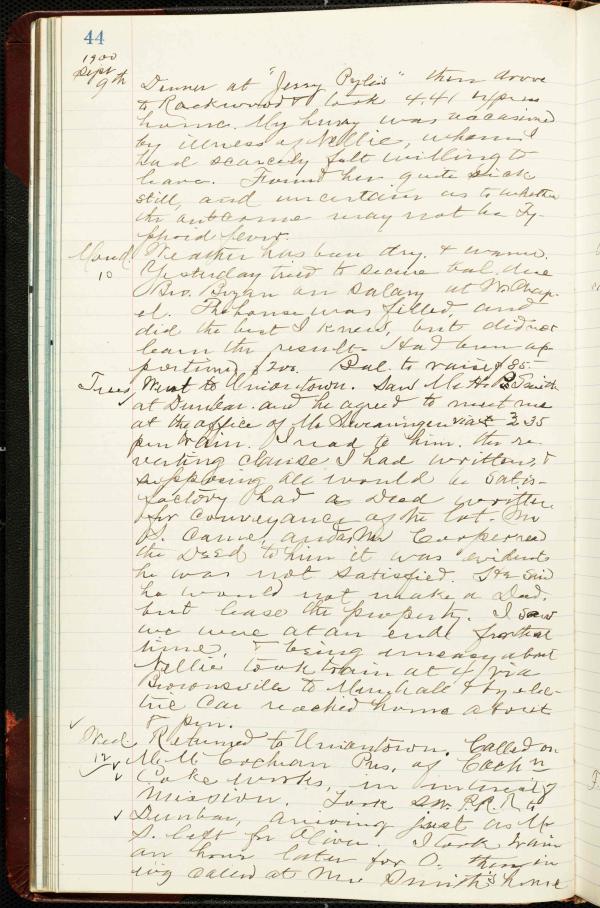 44
1900
Sept
9th
Dinner at "Jerry Pyle's" then drove
to Rockwood & took 4.41 express
home. My hurry was occasioned
by illness of Nellie, whom I
had scarcely felt willing to
leave. Found her quite sick
still, and uncertain as to whether
the outcome may not be Ty-
phoid fever.
Mond. Weather has been dry & warm.
10 Yesterday tried to secure bal. due
Bro. Bryan on salary at W. Chap-
el. The house was filled, and
did the best I knew, but did not
learn the result. Had been ap-
portioned $200. Bal. to raise $85.
Tues Went to Uniontown. Saw Mr. Smith
at Dunbar and he agreed to meet me
at the office of Mr. via 2 35
pm train. I read to him the re-
verting clause I had written, &
supposing all would be satis-
factory had a Deed written
for conveyance of the lot. Mr
S. came, and as Mr Cooper read
the Deed to him it was evident
he was not satisfied. He said
he would not make a Deed,
but lease the property. I saw
we were at an end for that
time, & being uneasy about
Nellie took train at 4 via
Brownsville to Marshall & by elec-
tric Car reached home about
8 pm.
Wed. Returned to Uniontown. Called on
12 M. M. Cochran Pres. of
Coke works, in interest of
Mission. Took P.R.R. to
Dunbar, arriving just as Mr
S. left for . I took train
an hour later for O. then
ing called at Mr Smith's house